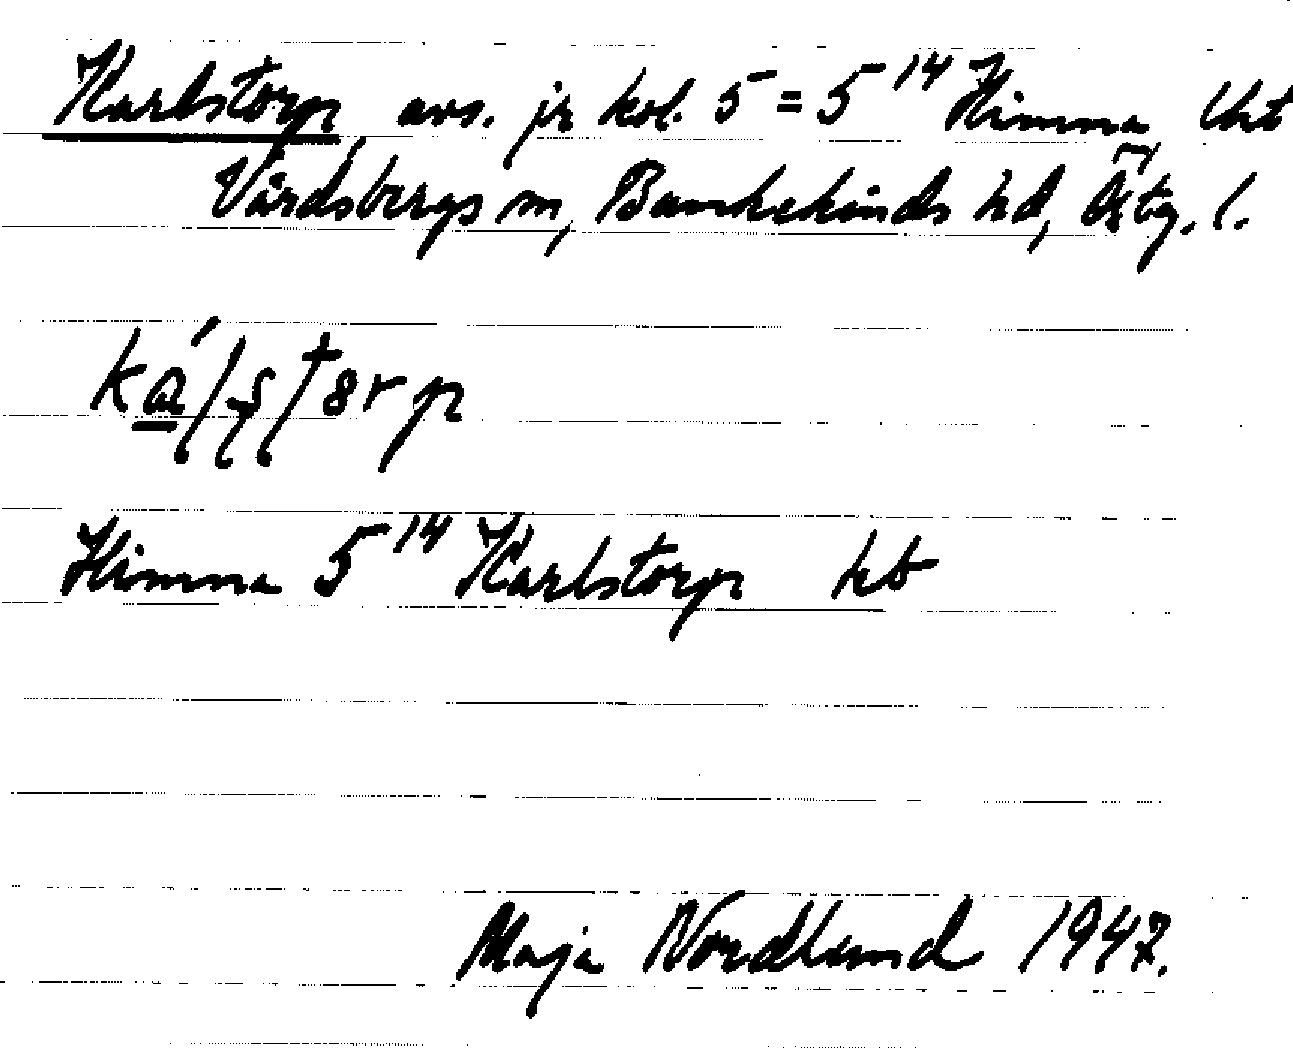 Karlstorp avs. jr kol. 5 = 5¹⁴ Himna, Vkt
Vårdsbergs sn, Bankekinds hd, Östg. l.
Himna 5¹⁴ Karlstorp kb
Maja Nordlund 1947.